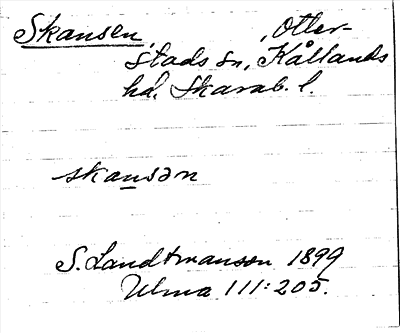 Skansen, Otter-
stads sn, Kållands
hd. Skarab. l.
skansən
S. Landtmanson 1899
Ulma 111:205.